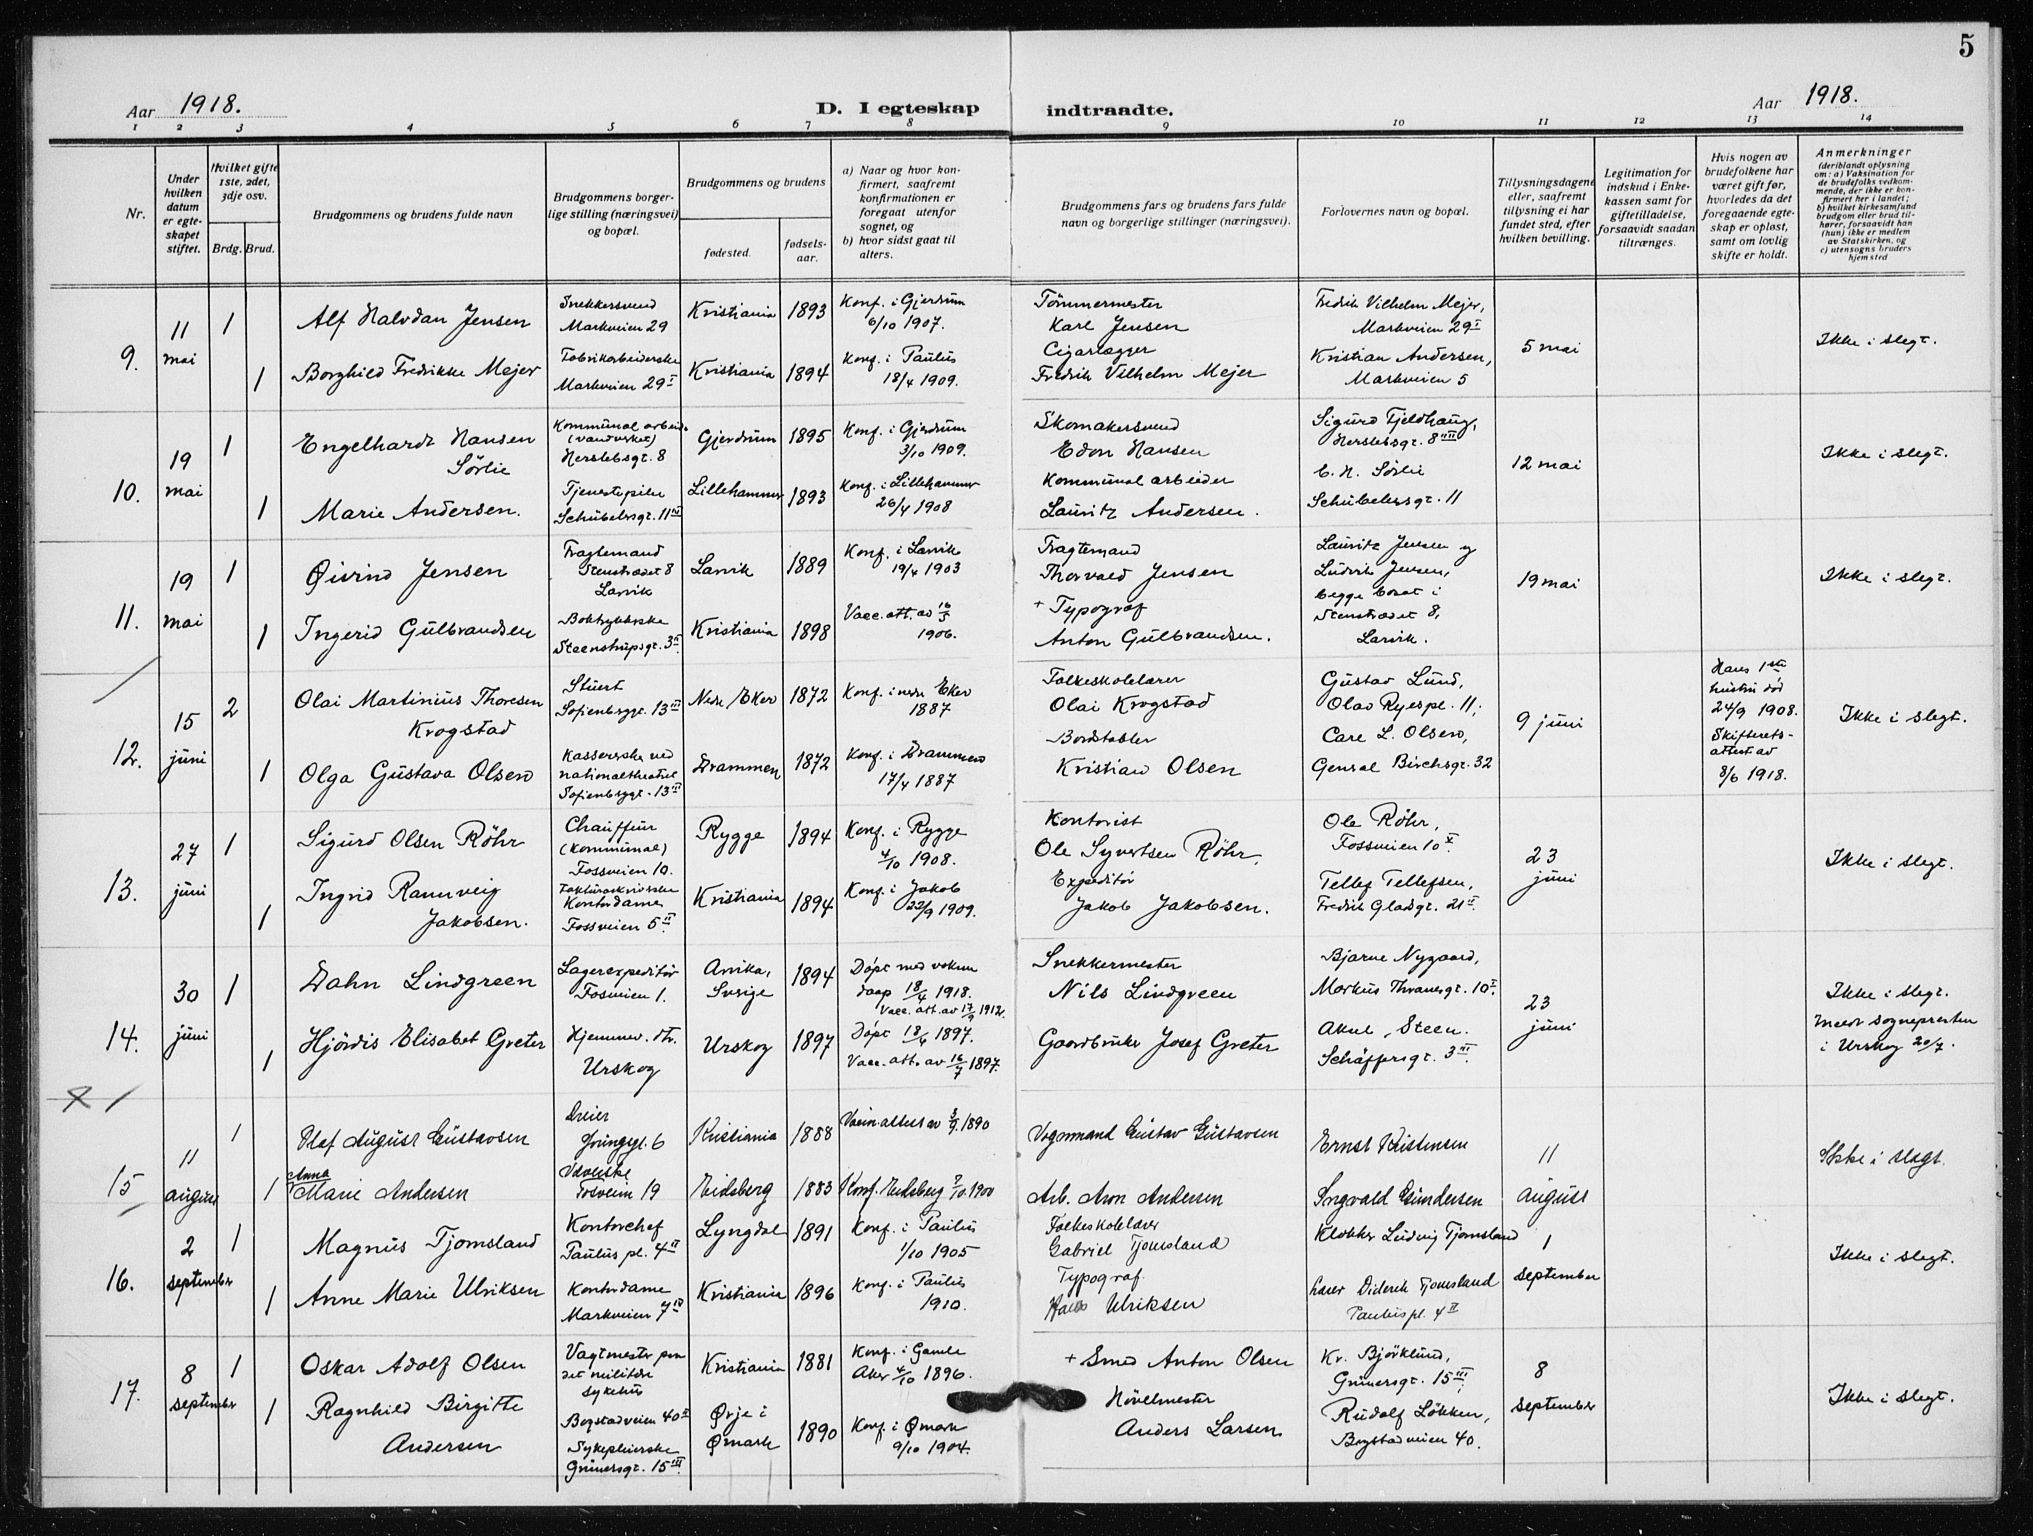 5
Aar 1918.
D. I egteskap indtraadte.
Aar 1918.
1 2 3 4 5 6 7 8 9 10 11 12 13 14
Nr.
Under hvilken datum er egteskapet stiftet.
Hvilket gifte 1ste, 2det, 3dje osv.
Brdg. Brud.
Brudgommens og brudens fulde navn
Brudgommens borgerlige stilling (næringsvei) og bopæl.
Brudgommens og brudens
fødested.
fødselsaar.
a) Naar og hvor konfirmert, saafremt konfirmationen er foregaat utenfor sognet, og
b) hvor sidst gaat til alters.
Brudgommens fars og brudens fars fulde navn og borgerlige stillinger (næringsvei).
Forlovernes navn og bopæl.
Tillysningsdagene eller, saafremt tillysning ei har fundet sted, efter hvilken bevilling.
Legitimation for indskud i Enkekassen samt for giftetilladelse, forsaavidt saadan tiltrænges.
Hvis nogen av brudefolkene har været gift før, hvorledes da det foregaaende egteskap er opløst, samt om lovlig skifte er holdt.
Anmerkninger
(deriblandt oplysning om: a) Vaksination for de brudefolks vedkommende, der ikke er konfirmert her i landet; b) hvilket kirkesamfund brudgom eller brud tilhører, forsaavidt han (hun) ikke er medlem av Statskirken, og c) utensogns bruders hjemsted
9. 11 mai
1 Alf Halvdan Jensen
Snekkersvend
Markveien 29
Kristiania 1893
Konf. i Gjerdrum
6/10 1907.
Tømmermester
Karl Jensen
Fredrik Vilhelm Mejer,
Markveien 29 I
5 mai
Ikke i slegt.
1 Borghild Fredrikke Mejer
Fabrikarbeiderske
Markveien 29 I
Kristiania 1894
Konf. i Paulus
18/4 1909.
Cigarlægger
Fredrik Vilhelm Mejer
Kristian Andersen,
Markveien 5
10. 19 mai
1 Engelhardt Hansen
Sörlie
Kommunal arbeid.
(vandverket)
Herslebsgt. 8
Gjerdrum 1895
Konf. i Gjerdrum
3/10 1909.
Skomakersvend
Edon Hansen
Sigurd Fjeldhaug,
Herslebsgt. 8 III
12 mai
Ikke i slegt.
1 Marie Andersen.
Tjenestepike
Schübelersgt. 11 IV
Lillehammer 1893
Konf. i Lillehammer
26/4 1908
Kommunal arbeider
Lauritz Andersen.
C. H. Sörlie
Schübelersgt. 11
11. 19 mai
1 Øivind Jensen
Fragtemand
Stenstrædet 8
Larvik
Larvik 1889
Konf. i Larvik
19/4 1903
Fragtemand
Thorvald Jensen
Lauritz Jensen og
Ludvik Jensen,
begge bosat i
Stenstrædet 8,
Larvik.
19 mai
Ikke i slegt.
1 Ingerid Gulbrandsen
Boktrykkerske
Steenstrupsgt. 3 II
Kristiania 1898
Vacc. att. av 16/5
1906.
+ Typograf
Anton Gulbrandsen.
12. 15 juni
2 Olai Martinius Thoresen
Krogstad
Stuert
Sofienbergt. 13 III
Nedre Eker 1872
Konf. i nedre Eker
1887
Folkeskolelærer
Olai Krogstad
Gustav Lund,
Olav Ryespl. 11;
9 juni
Hans 1ste
hustru död
24/9 1908.
Skifteretsattest av
8/6 1918.
Ikke i slegt.
1 Olga Gustava Olsen
Kassererske ved
nationaltheatret
Sofienbergt. 13 III
Drammen 1872
Konf. i Drammen
17/4 1887
Bordstabler
Kristian Olsen
Carl L. Olsen,
General Birchsgt. 32
13. 27 juni
1 Sigurd Olsen Röhr
Chauffeur
(kommunal)
Fossveien 10.
Rygge 1894
Konf. i Rygge
4/10 1908.
Kontorist
Ole Syvertsen Röhr,
Ole Röhr,
Fossveien 10 V.
23 juni
Ikke i slegt.
1 Ingrid Rannveig
Jakobsen.
Kontordame
Fossveien 5 II
Kristiania 1894
Konf. i Jakob
22/9 1909.
Expeditör
Jakob Jakobsen.
Tellef Tellefsen,
Fredrik Gladsgt. 21 II.
14. 30 juni
1 Dahn Lindgreen
Lagerexpeditör
Fosveien 1.
Arvika,
Sverige 1894
Döpt med voksen
daap 18/4 1918.
Vacc. att. av 17/9 1912.
Snekkermester
Nils Lindgreen
Bjarne Nygaard,
Markus Thranesgt. 10 I.
23 juni
Ikke i slegt.
meldt sognepresten
i Urskog 20/7.
1 Hjördis Elisabet Greter
Hjemmev. dtr.
Urskog
Urskog 1897
Döpt 18/4 1897.
Vacc. att. av 16/7 1897.
Gaardbruker Josef Greter
Aksel Steen.
Schäffersgt. 3 III.
15 11 august
1 Olaf August Gustavsen
Dreier
Kristiania 1888
Vaccin.attest av 3/9. 1890
Vognmand Gustav Gustavsen
Ernst Kristensen
11 august
Ikke i slegt
1 Anna
Marie Andersen
Væverske
Fosveien 19
Eidsberg 1883
Konf. Eidsberg 7/10. 1900
Arb. Aron Andersen
Ingvald Gundersen
16. 2 september
1 Magnus Tjomsland
Kontorchef
Paulus pl. 4 II
Lyngdal 1891
Konf. i Paulus
1/10 1905
Folkeskolelærer
Gabriel Tjomsland
Klokker Ludvig Tjomsland
1 september
Ikke i slegt.
1 Anne Marie Ulriksen
Kontordame
Markveien 7 IV
Kristiania 1896
Konf. i Paulus
1910.
Typograf
Hans Ulriksen
Lærer Diderik Tjomsland
Paulus pl. 4 II
17. 8 september
1 Oskar Adolf Olsen
Vagtmester paa
det militære
sykehus
Bogstadveien 40 II
Kristiania 1881
Konf. i Gamle
Aker 4/10 1896.
+ Smed Anton Olsen
Kr. Björklund,
Grünersgt. 15 III;
8 september
Ikke i slegt.
1 Ragnhild Birgitte
Andersen
Sykepleierske
Grünersgt. 15 III.
Ørje i
Ømark 1890
Konf. i Ømark
9/10 1904.
Hövelmester
Anders Larsen
Rudolf Lökken,
Bogstadveien 40.